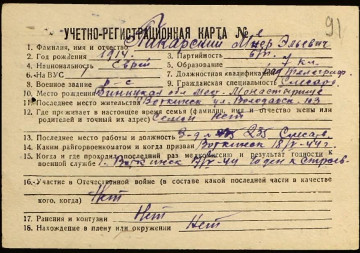 91
УЧЕТНО-РЕГИСТРАЦИОННАЯ КАРТА №
1 Фамилия, имя и отчество Пикарский Мэер Эльевич
2 Год рождения 1914. 3. Партийность б/п.
4 Национальность Еврей 5. Образование 7 кл.
6 На ВУС 7. Должностная квалификация
8. Военное звание р-с 9. Гражданская специальность Слесарь
10. Место рождения Винницкая обл.
11 Последнее место жительства Воткинск ул. 113
12 Где проживает в настоящее время семья (фамилия, имя и отчество жены или
родителей и точный их адрес) Семьи нет
13. Последнее место работы и должность З-д 235 Слесарь.
14. Каким райгорвоенкоматом и когда призван Воткинск 18/V-44г.
15. Когда и где проходил последний раз медкомиссию и результат годности к
военной службе г. Воткинск V-44 Годен к строев.
16. Участие в Отечественной войне (в составе какой последней части и в качестве
кого, когда) Нет
17. Ранения и контузии Нет
18. Нахождение в плену или окружении Нет